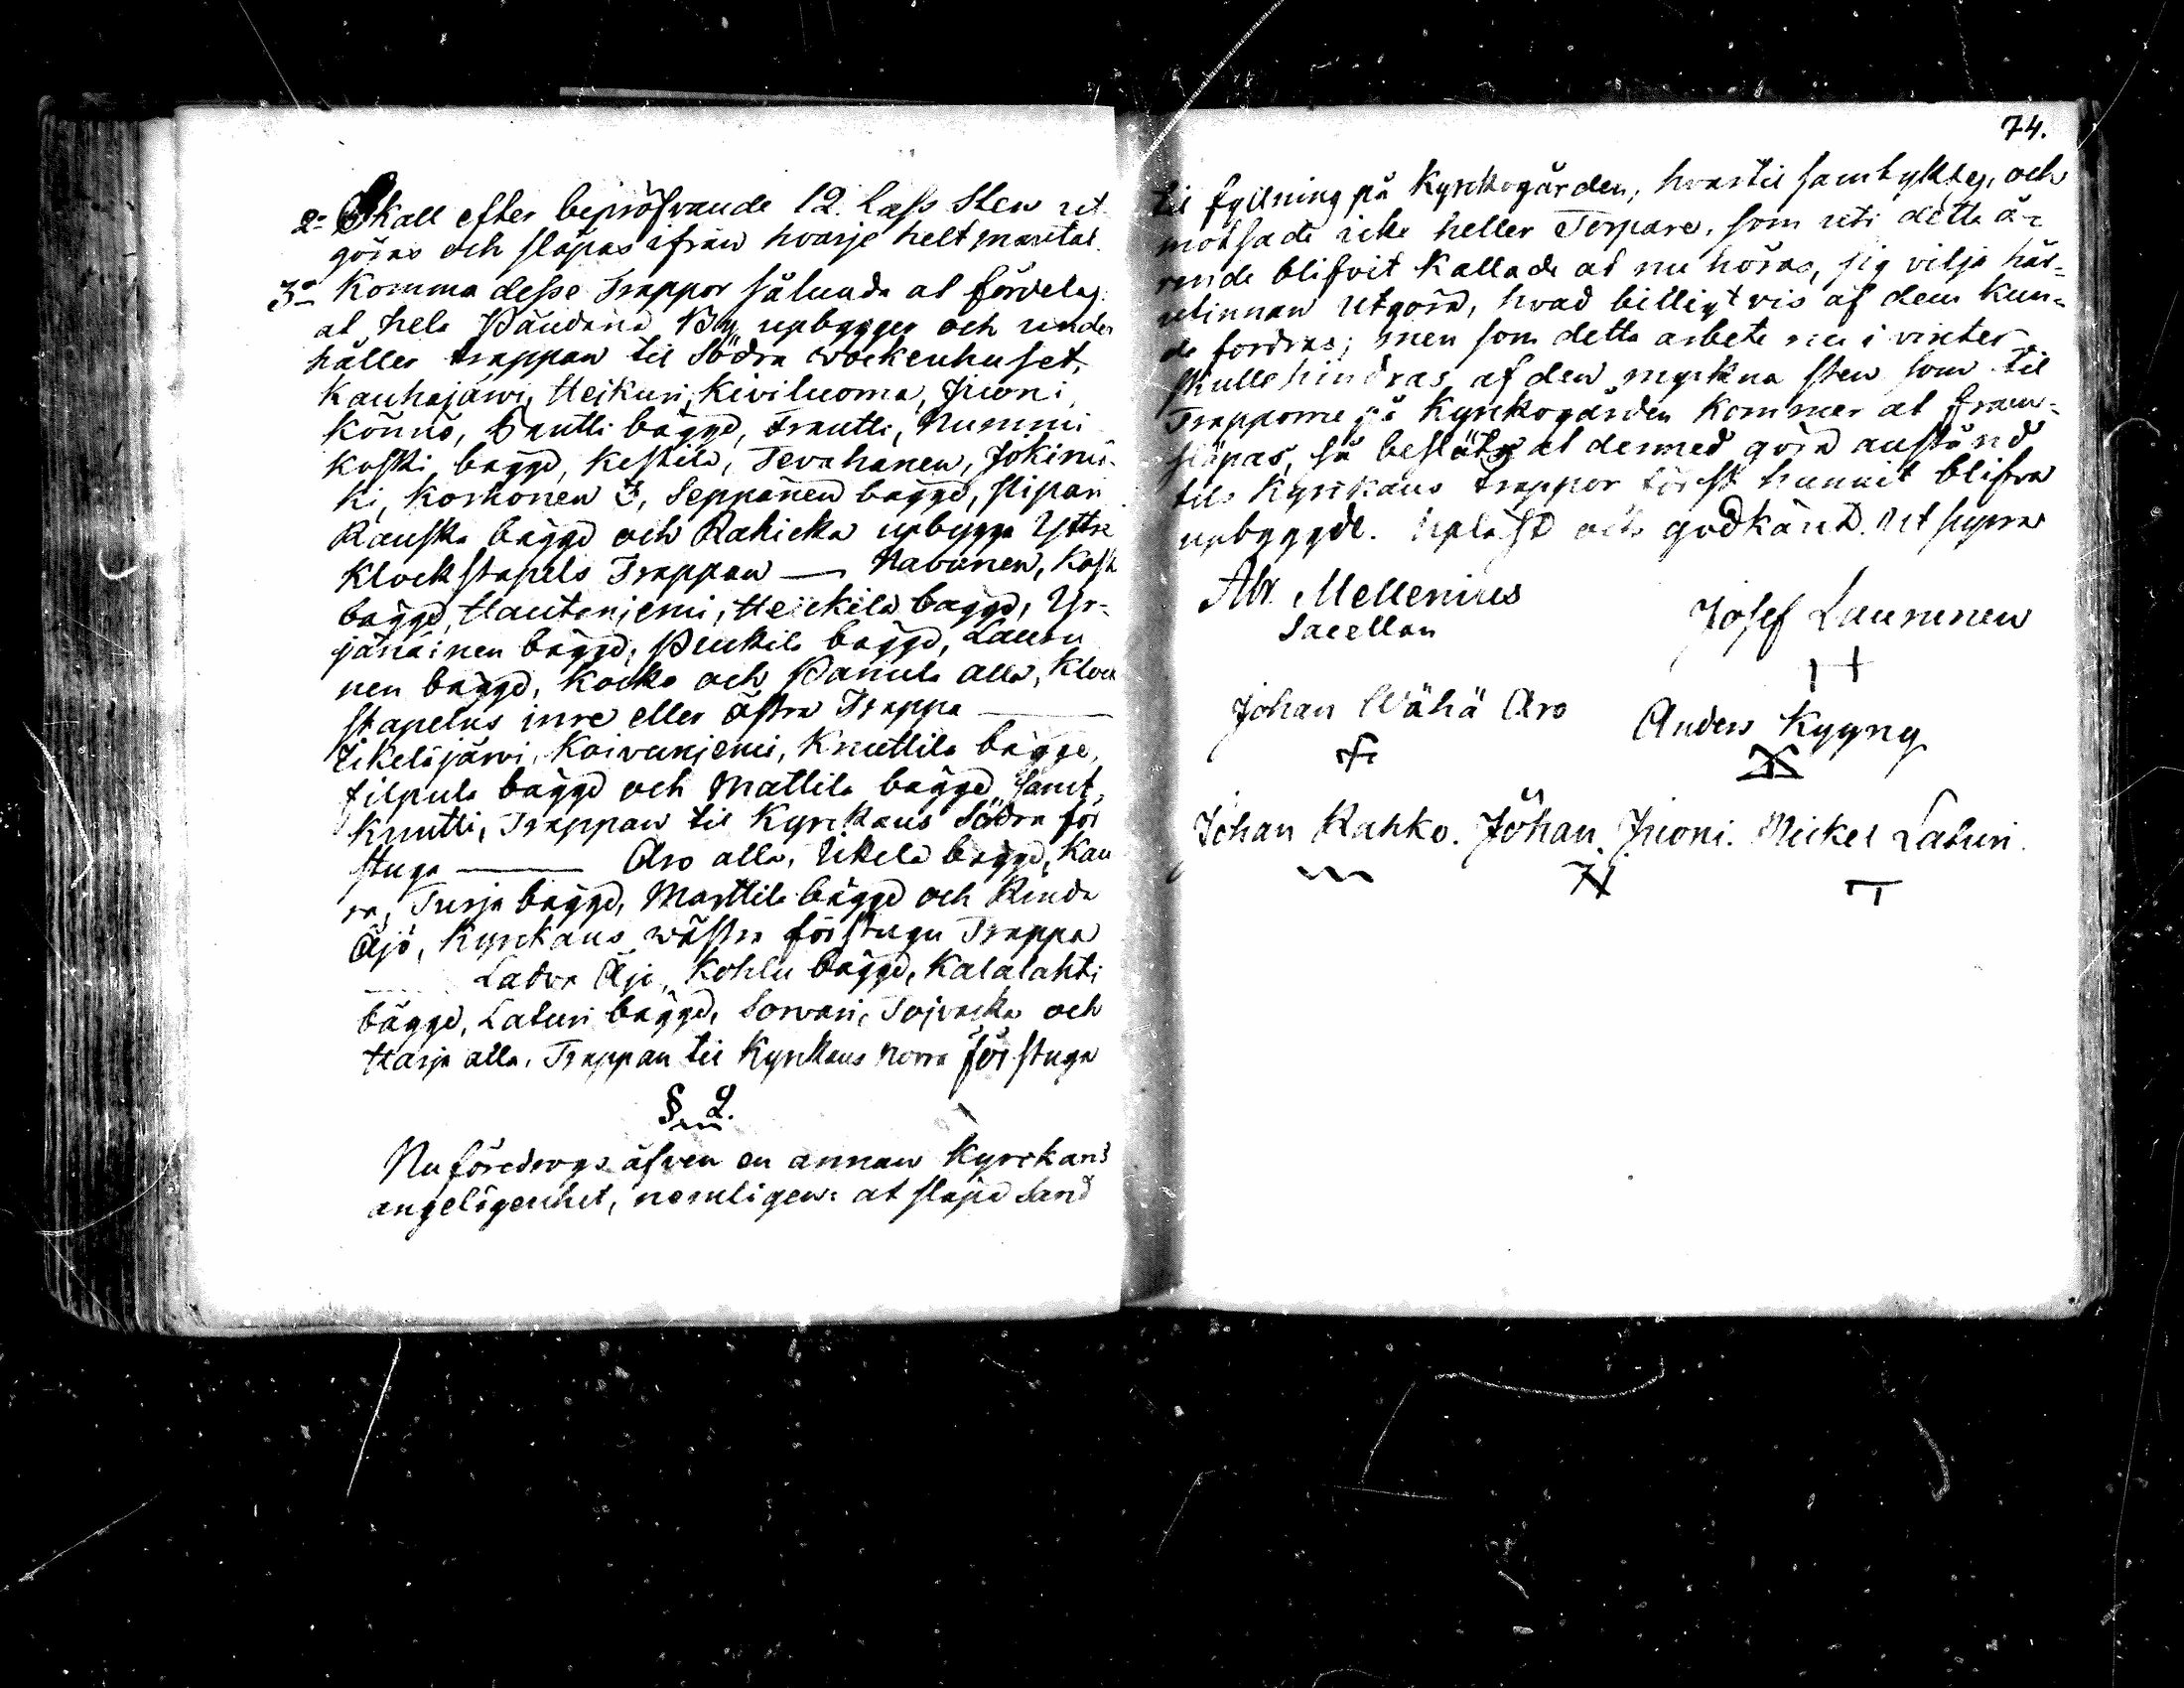 2o Skall efter bepröfvande 12. lass Sten ut
göras och släpas ifrån hvarje helt mantal.
3o Komma desse Trappor sålunda at fördelas:
at hela Päntäne By upbygger och under
håller trappan til Södra wockenhuset,
Kauhajärwi, Heikuri, Kiviluoma, Jiuoni,
Könnö, Prutti bägge, Trautti, Nummi
koski bägge, Keskila, Tevahanen, Jokimä-
ki, Korhonen, Seppänen bägge, Slipari
Rauska bägge och Rahicka upbygga Yttre
Klockstapels Trappan — Havunen, Kosk
bägge, Hautaniemi, Heickilä bägge, Yr-
jänäinen bägge, Penkilä bägge, Launu
nen bägge, Kocko och Panula alla, Klock
stapelns inre eller östra Trappa —
Ikeläjärvi, Koivuniemi, Knuttila bägge,
Filpula bägge och Mattila bägge, samt,
Knutti, Trappan til Kyrckans Södra för
stuga — Aro alla, Ikelä bägge, Kau
ra, Turja bägge, Marttila bägge och Rinda
Äjö, Kyrckans wästra förstugu Trappa
— Latva Äjö, Kohlu bägge, Kalalahti
bägge, Laturi bägge, Sorvari, Toivacka och
Harja alla, Trappan til Kyrckans Norra förstuga
§ 2.
Nu föredrogs äfven en annan Kyrckans
angelägenhet, nemligen: at släpa Sand
74.
til fyllning på Kyrckogården, hvartil samtyktes, och
motsade icke heller Torpare, som uti detta ä-
rende blifvit kallade at nu höras, sig vilja här-
utinnan utgöra, hvad billigt vis af dem kun-
de fordras; men som detta arbete nu i vinter
skulle hindras af den myckna sten som til
Trapporne på Kyrckogården kommer at fram-
släpas, så beslöts at dermed göra anstånd
tils Kyrckans trappor först hunnit blifva
upbyggde. Upläst och godkänt. Ut supra
Abr. Mellenius
Sacellan
Josef Laununen
Johan Wähä Aro
Anders Kyyny
Johan Rahko. Johan Jiuoni. Mickel Laturi.